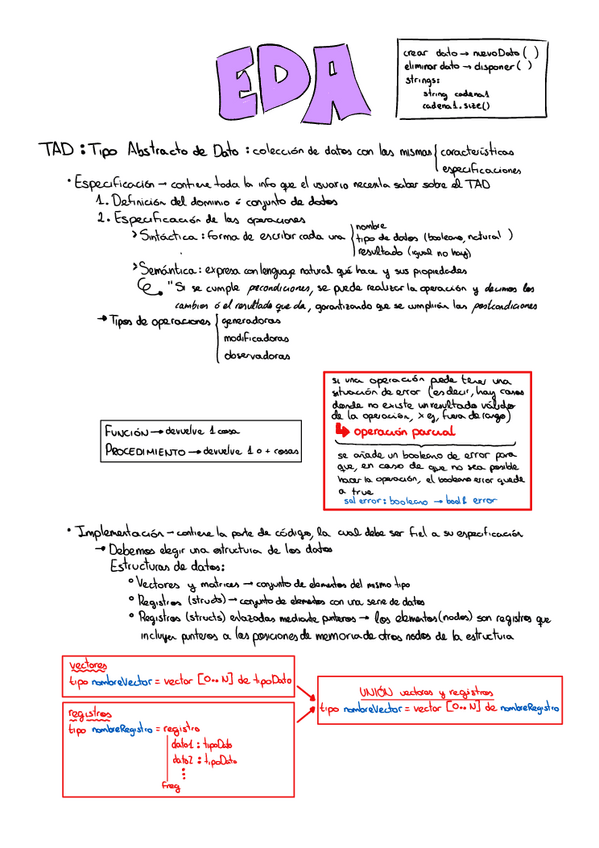 EDA
crear dato → nuevoDato ( )
eliminar dato → disponer ( )
strings:
string cadena1
cadena1.size()
TAD : Tipo Abstracto de Dato : colección de datos con las mismas { características
especificaciones
• Especificación → contiene toda la info que el usuario necesita saber sobre el TAD
1. Definición del dominio ó conjunto de datos
2. Especificación de las operaciones
> Sintáctica : forma de escribir cada una { nombre
tipo de datos (booleano, natural )
resultado (igual no hay)
> Semántica : expresa con lenguaje natural qué hace y sus propiedades
"Si se cumple precondiciones, se puede realizar la operación y decimos los
cambios ó el resultado que da, garantizando que se cumplirán las postcondiciones
→ Tipos de operaciones { generadoras
modificadoras
observadoras
si una operación puede tener una
situación de error (es decir, hay casos
donde no existe un resultado válido
de la operación, x ej, fuera de rango)
↳ operación parcial
se añade un booleano de error para
que, en caso de que no sea posible
hacer la operación, el booleano error quede
a true
sal error : booleano → bool& error
FUNCIÓN → devuelve 1 cosa
PROCEDIMIENTO → devuelve 1 o + cosas
• Implementación → contiene la parte de código, la cual debe ser fiel a su especificación
→ Debemos elegir una estructura de los datos
Estructuras de datos:
° Vectores y matrices → conjunto de elementos del mismo tipo
° Registros (structs) → conjunto de elementos con una serie de datos
° Registros (structs) enlazados mediante punteros → los elementos (nodos) son registros que
incluyen punteros a las posiciones de memoria de otros nodos de la estructura
vectores
tipo nombreVector = vector [0.. N] de tipoDato
registros
tipo nombreRegistro = registro
dato1 : tipoDato
dato2 : tipoDato
⋮
freg
UNIÓN vectores y registros
tipo nombreVector = vector [0.. N] de nombreRegistro